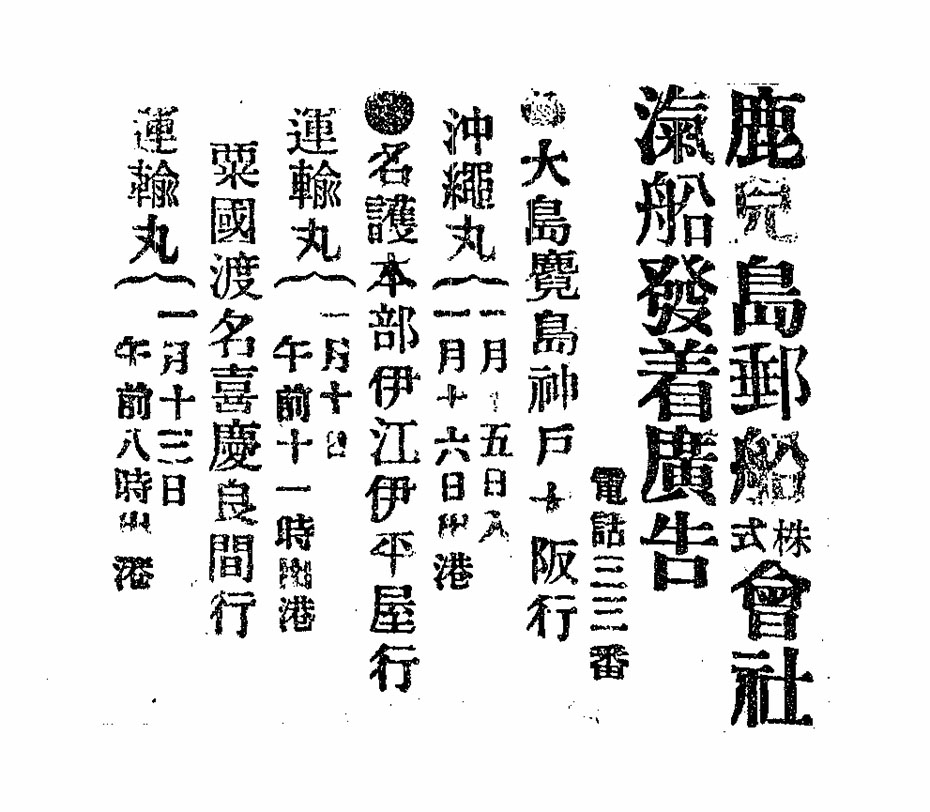 鹿児島郵船株式會社
滊船發着廣告
電話三三番
●大島鹿兒島神戸大阪行
沖繩丸
一月十五日入
一月十六日出港
●名護本部伊江伊平屋行
運輸丸
一月十日
午前十一時出港
粟國渡名喜慶良間行
運輸丸
一月十三日
午前八時出港